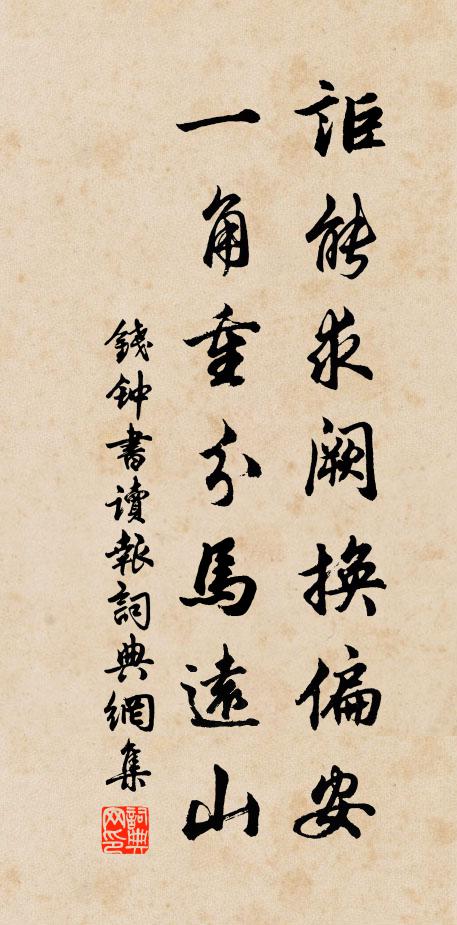 詎能求闕換偏安
一角重分馬遠山
錢钟書讀報詞典網集
詞典网印